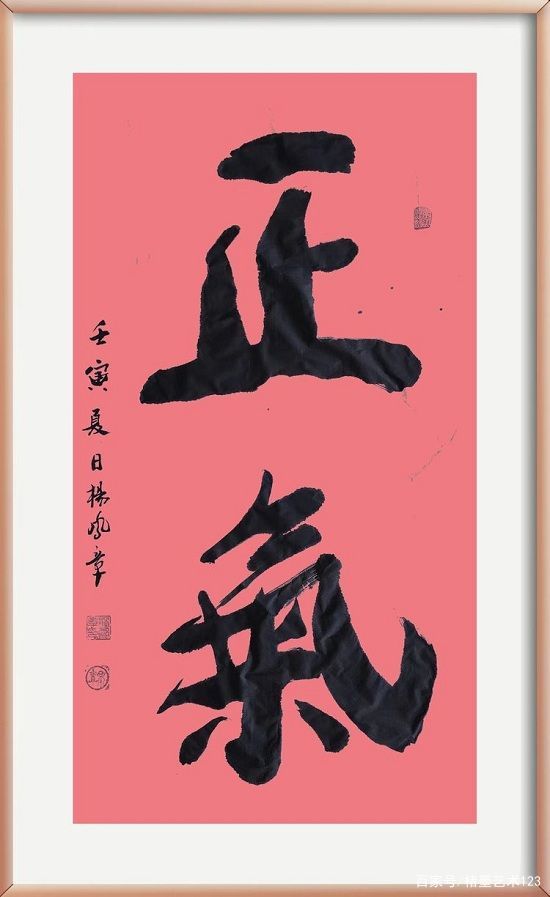 正氣
壬寅夏日楊鳳章
百家号/楮墨艺术123